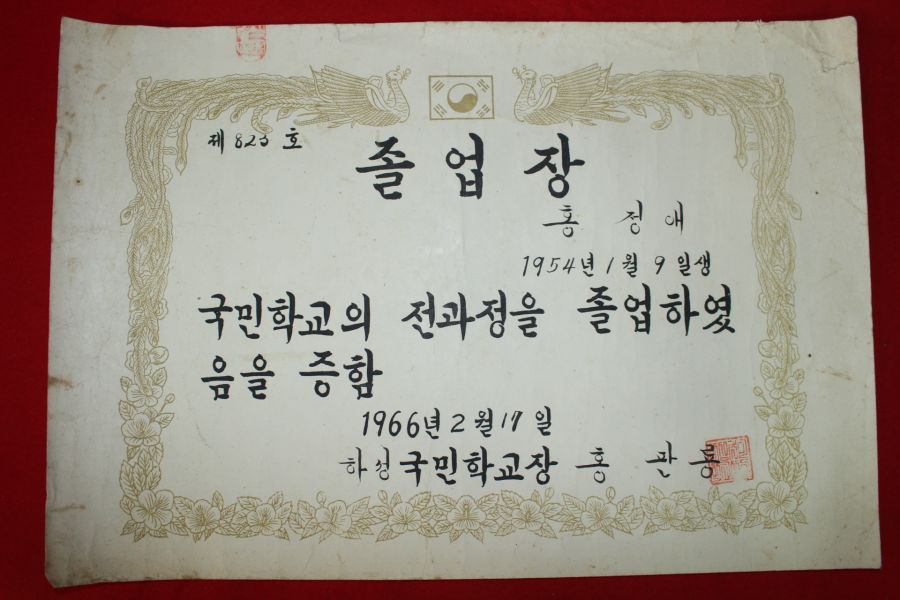 제 823 호
졸 업 장
홍 정 애
1954년 1월 9일생
국민학교의 전과정을 졸업하였
음을 증함
1966년 2월 17일
하성국민학교장 홍 판 룡